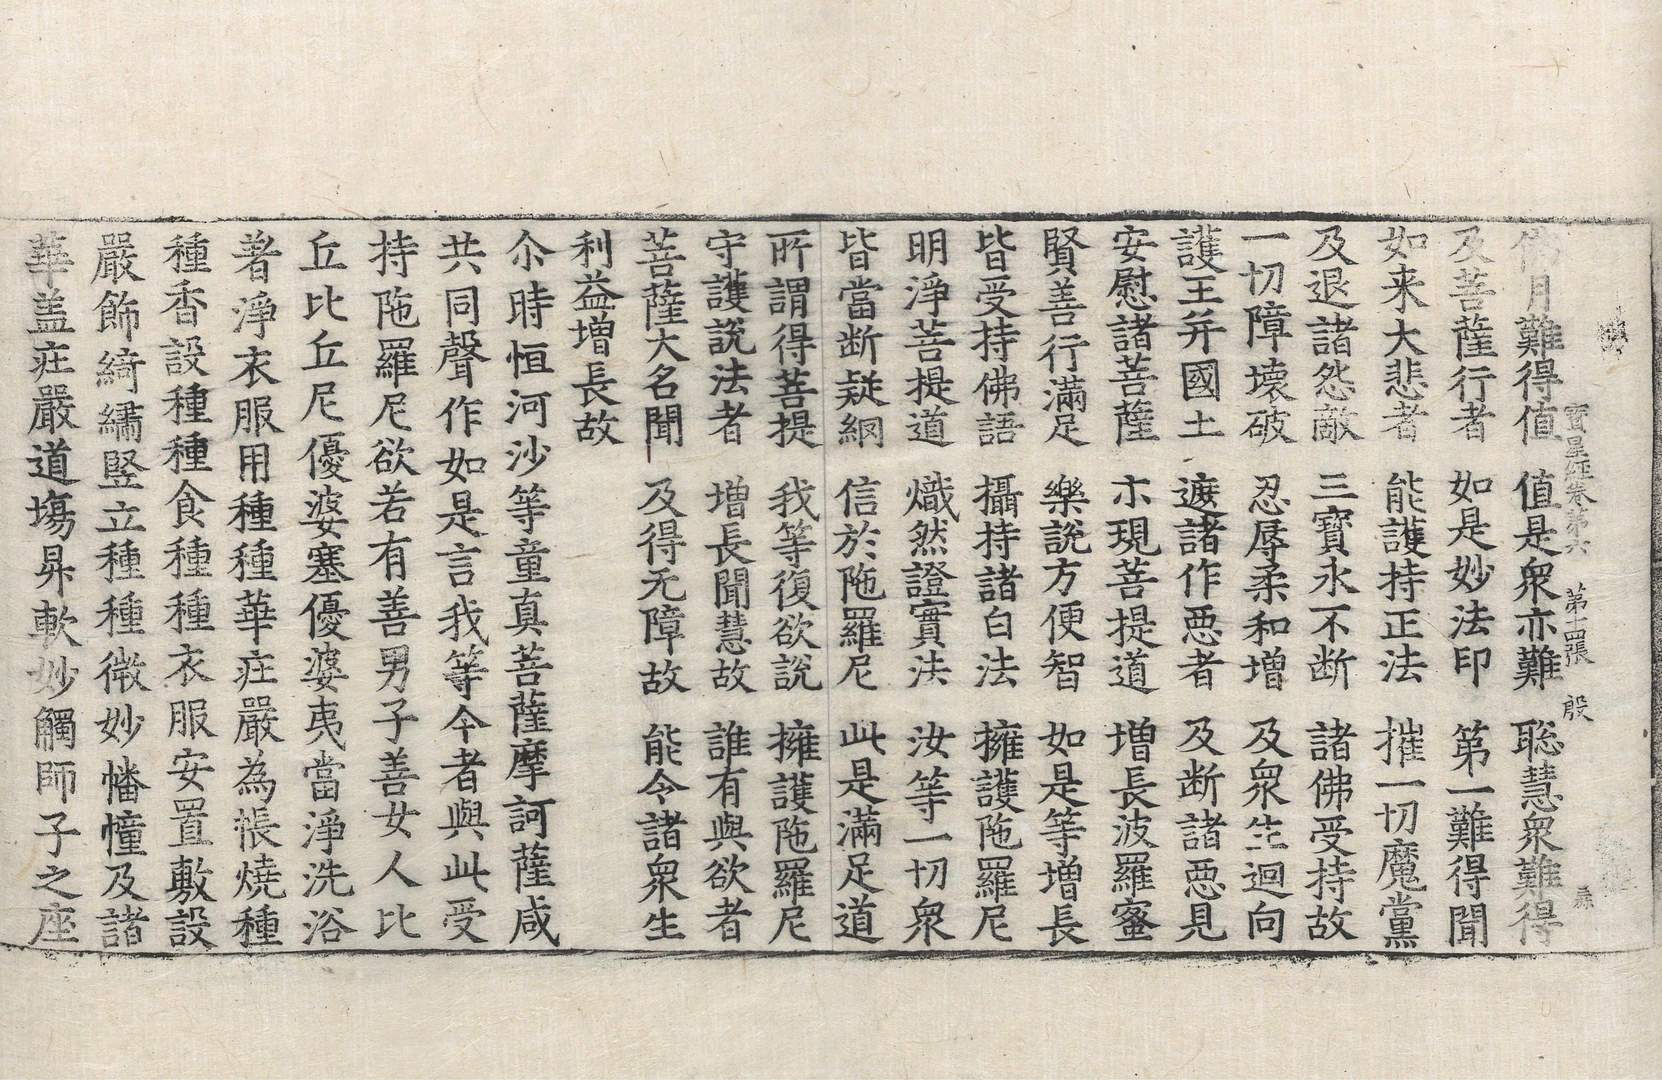 寳星經卷第六　第十四張　殷
佛月難得值　值是衆亦難　聡慧衆難得
及菩薩行者　如是妙法印　第一難得聞
如来大悲者　能護持正法　摧一切魔黨
及退諸怨敵　三寶永不断　諸佛受持故
一切障壞破　忍辱柔和增　及衆生迴向
護王并國土　遮諸作悪者　及断諸悪見
安慰諸菩薩　示現菩提道　增長波羅蜜
賢善行滿足　樂説方便智　如是等增長
皆受持佛語　攝持諸白法　擁護陁羅尼
明淨菩提道　熾然證實法　汝等一切衆
皆當断疑網　信於陁羅尼　此是滿足道
所謂得菩提　我等復欲說　擁護陁羅尼
守護說法者　增長聞慧故　誰有與欲者
菩薩大名聞　及得无障故　能令諸衆生
利益增長故
尒時恒河沙等童真菩薩摩訶薩咸
共同聲作如是言我等今者與此受
持陁羅尼欲若有善男子善女人比
丘比丘尼優婆塞優婆夷當淨洗浴
著淨衣服用種種華庄嚴為帳燒種
種香設種種食種種衣服安置敷設
嚴飾綺繡竪立種種微妙幡幢及諸
華盖庄嚴道塲昇軟妙觸師子之座